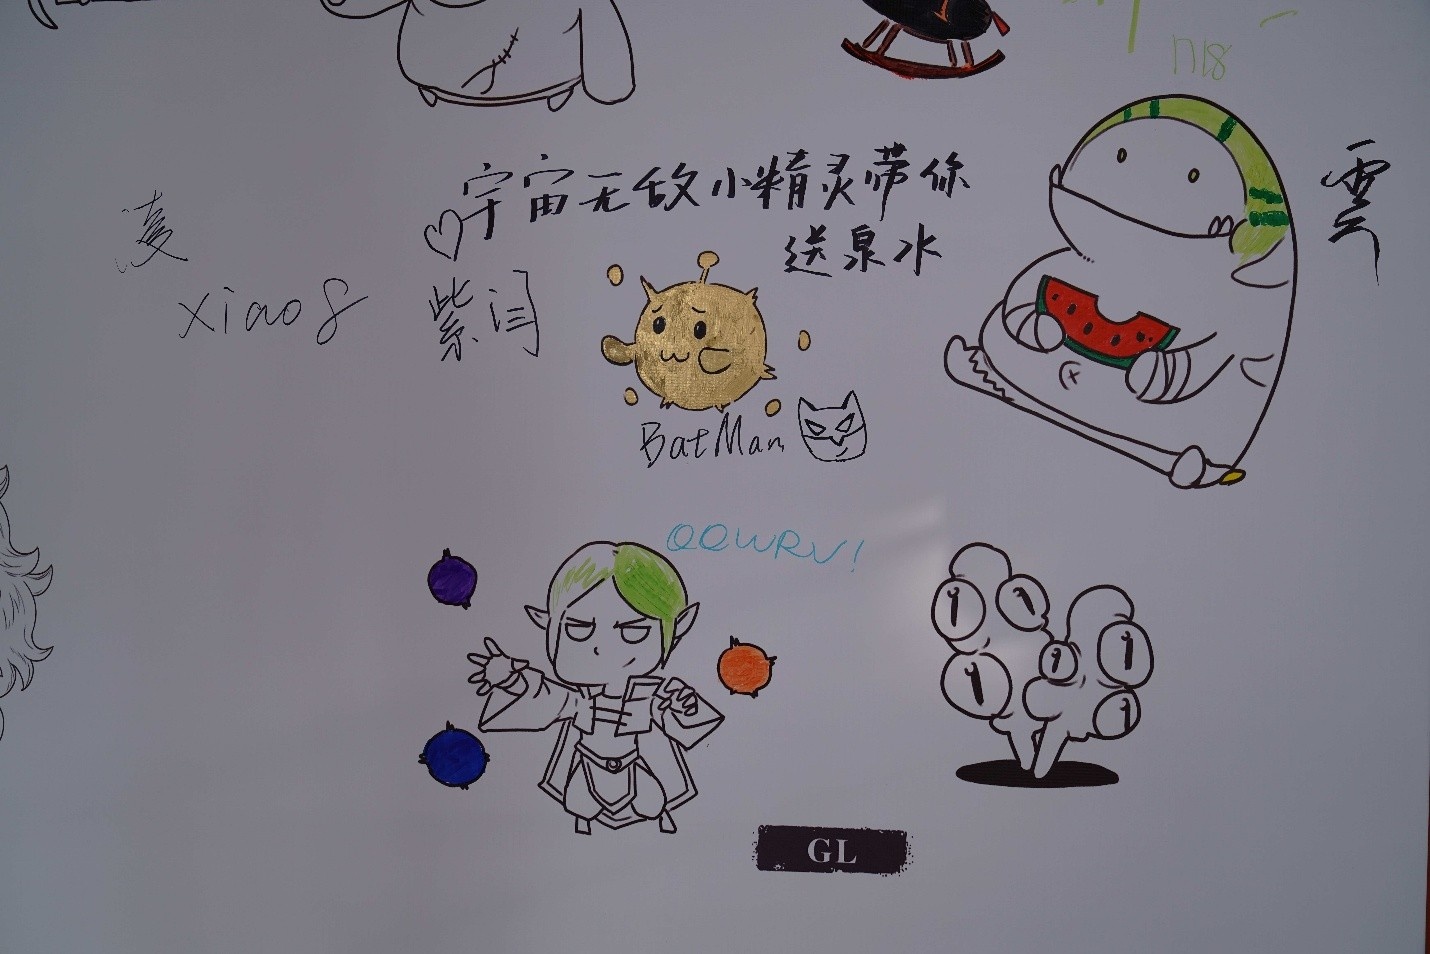 1718
宇宙无敌小精灵带你
送泉水
雲
凌
xiao8
紫闫
BatMan
QQWRV!
GL